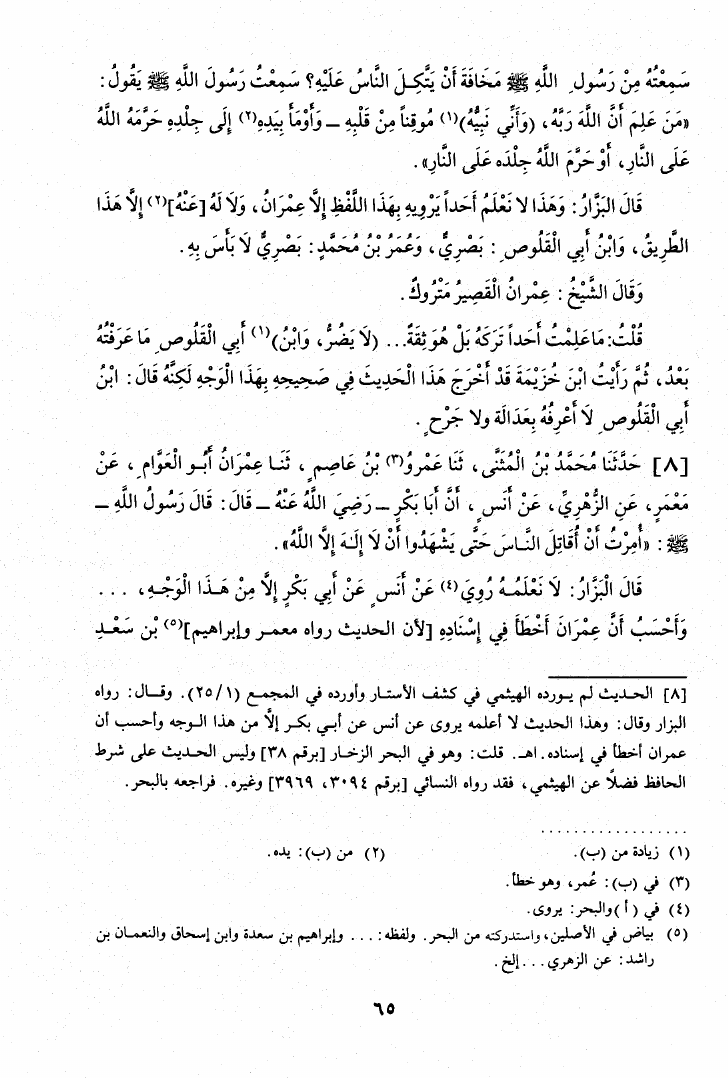 سَمِعْتُهُ مِنْ رَسُولِ اللَّهِ ﷺ مَخَافَةَ أَنْ يَتَّكِلَ النَّاسُ عَلَيْهِ؟ سَمِعْتُ رَسُولَ اللَّهِ ﷺ يَقُولُ:
«مَنَ عَلِمَ أَنَّ اللَّهَ رَبَّهُ، (وَأَنِّي نَبِيُّهُ)(١) مُوقِناً مِنْ قَلْبِهِ ـ وَأَوْمَأَ بِيَدِهِ(٢) إِلَى جِلْدِهِ حَرَّمَهُ اللَّهُ
عَلَى النَّارِ، أَوْ حَرَّمَ اللَّهُ جِلْدَه عَلَى النَّارِ».
قَالَ البَزَّارُ: وَهَذَا لا نَعْلَمُ أَحَداً يَرْوِيهِ بِهَذَا اللَّفْظِ إِلَّا عِمْرَانُ، وَلَا لَهُ [عَنْهُ](٢) إِلَّا هَذَا
الطَّرِيقُ، وَابْنُ أَبِي الْقَلُوصِ: بَصْرِيٌّ، وَعُمَرُ بْنُ مُحَمَّدٍ: بَصْرِيٌّ لَا بَأْسَ بِهِ.
وَقَالَ الشَّيْخُ: عِمْرانُ الْقَصِيرُ مَتْروكٌ.
قُلْتُ: مَا عَلِمْتُ أَحَداً تَرَكَهُ بَلْ هُوَ ثِقَةٌ... (لَا يَضُرُّ، وَابْنُ)(١) أَبِي الْقَلُوصِ مَا عَرَفْتُهُ
بَعْدُ، ثُمَّ رَأَيْتُ ابْنَ خُزَيْمَةَ قَدْ أَخْرَجَ هَذَا الْحَدِيثَ فِي صَحِيحِهِ بِهَذَا الْوَجْهِ لَكِنَّهُ قَالَ: ابْنُ
أَبِي الْقَلُوصِ لَا أَعْرِفُهُ بِعَدَالَةٍ ولا جَرْحٍ.
[٨] حَدَّثَنَا مُحَمَّدُ بْنُ الْمُثَنَّى، ثَنَا عَمْرو(٣) بْنُ عَاصِمٍ، ثَنَا عِمْرَانُ أَبُو الْعَوَّامِ، عَنْ
مَعْمَرٍ، عَنِ الزُّهْرِيِّ، عَنْ أَنَسٍ، أَنَّ أَبَا بَكْرٍ ـ رَضِيَ اللَّهُ عَنْهُ ـ قَالَ: قَالَ رَسُولُ اللَّهِ ـ
ﷺ: «أُمِرْتُ أَنْ أُقَاتِلَ النَّاسَ حَتَّى يَشْهَدُوا أَنْ لَا إِلَهَ إِلَّا اللَّهُ».
قَالَ الْبَزَّارُ: لَا نَعْلَمُهُ رُوِيَ(٤) عَنْ أَنَسٍ عَنْ أَبِي بَكْرٍ إِلَّا مِنْ هَذَا الْوَجْهِ، ...
وَأَحْسَبُ أَنَّ عِمْرَانَ أَخْطَأَ فِي إِسْنَادِهِ [لأن الحديث رواه معمر وإبراهيم](٥) بْن سَعْدٍ
[٨] الحديث لم يورده الهيثمي في كشف الأستار وأورده في المجمع (٢٥/١). وقال: رواه
البزار وقال: وهذا الحديث لا أعلمه يروى عن أنس عن أبي بكر إلَّا من هذا الوجه وأحسب أن
عمران أخطأ في إسناده. اهـ. قلت: وهو في البحر الزخار [برقم ٣٨] وليس الحديث على شرط
الحافظ فضلاً عن الهيثمي، فقد رواه النسائي [برقم ٣٠٩٤، ٣٩٦٩] وغيره. فراجعه بالبحر.
(١) زيادة من (ب). (٢) من (ب): يده.
(٣) في (ب): عُمر، وهو خطأ.
(٤) في (أ) والبحر: يروى.
(٥) بياض في الأصلين، واستدركته من البحر. ولفظه: ... وإبراهيم بن سعدة وابن إسحاق والنعمان بن
راشد: عن الزهري... إلخ.
٦٥